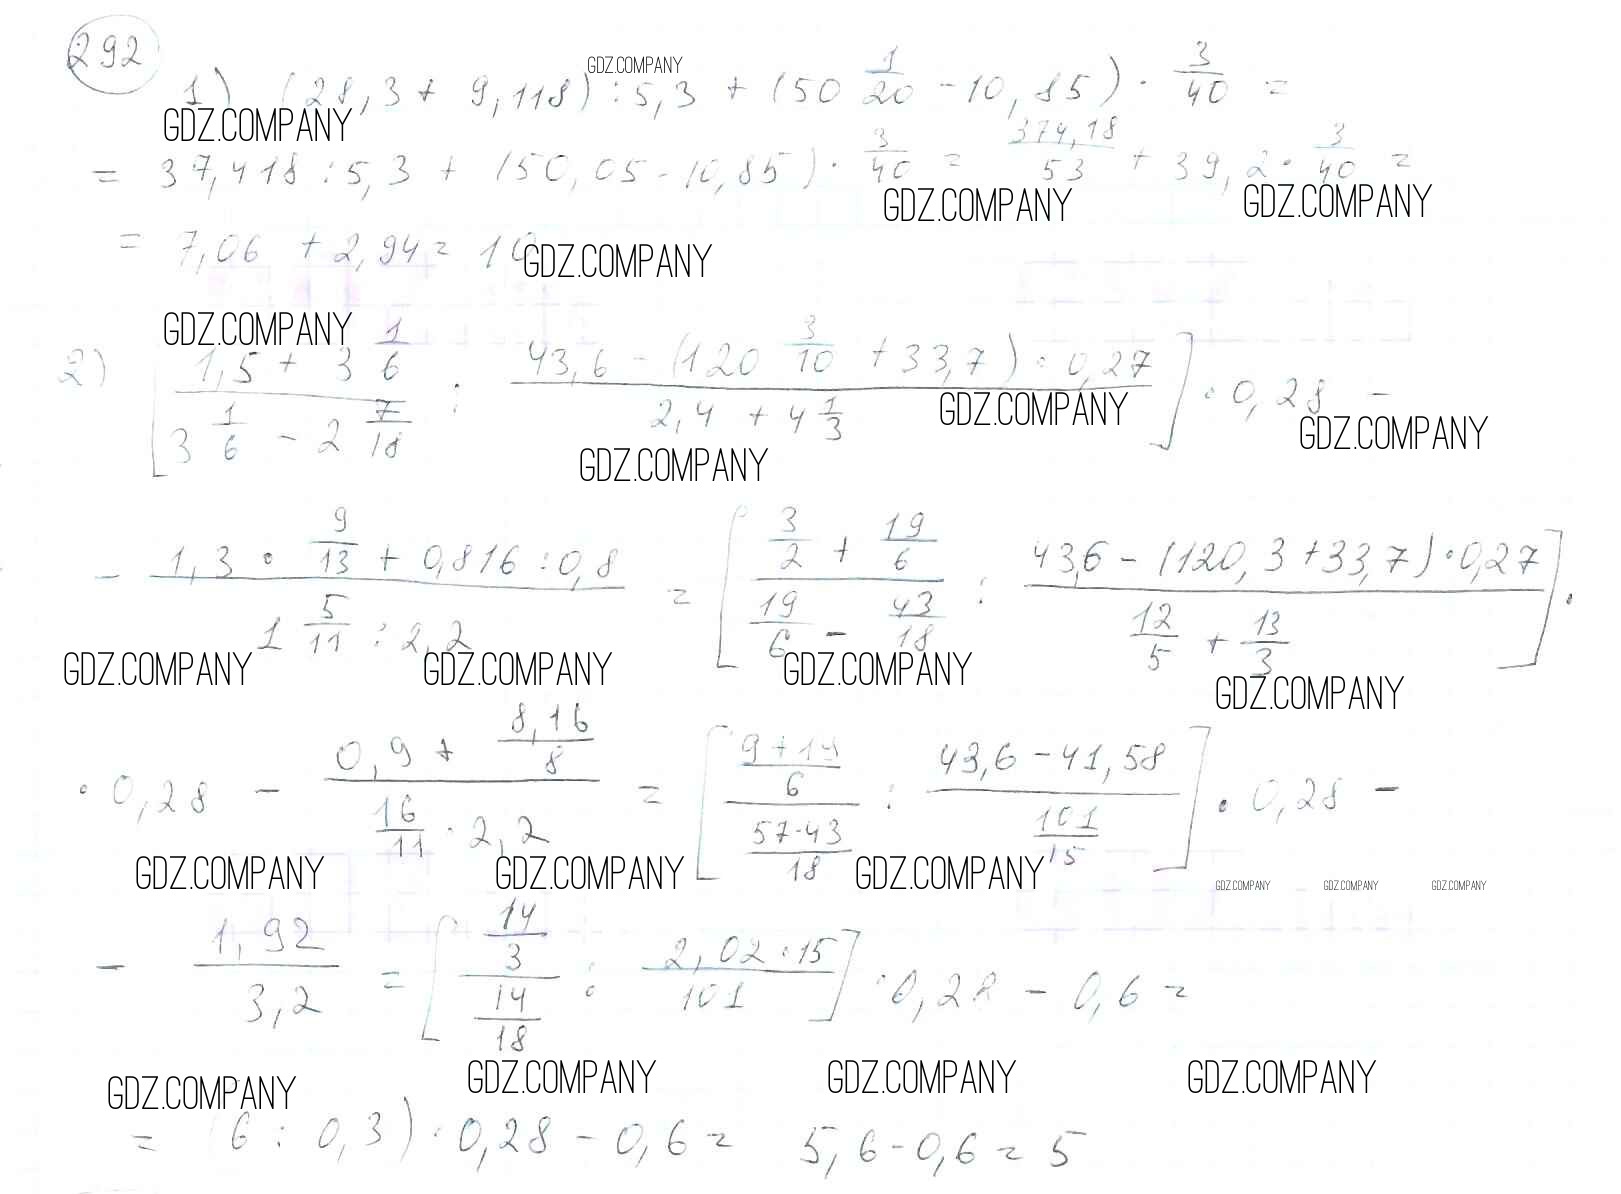 292
GDZ.COMPANY
1) (28,3 + 9,118) : 5,3 + (50 1/20 - 10,85) · 3/40 =
GDZ.COMPANY
= 37,418 : 5,3 + (50,05 - 10,85) · 3/40 = 374,18/53 + 39,2 · 3/40 =
GDZ.COMPANY GDZ.COMPANY
= 7,06 + 2,94 = 10
GDZ.COMPANY
GDZ.COMPANY
2) [(1,5 + 3 1/6)/(3 1/6 - 2 7/18) : (43,6 - (120 3/10 + 33,7) · 0,27)/(2,4 + 4 1/3)] · 0,28 -
GDZ.COMPANY GDZ.COMPANY
GDZ.COMPANY
- (1,3 · 9/13 + 0,816 : 0,8)/(1 5/11 : 2,2) = [(3/2 + 19/6)/(19/6 - 43/18) : (43,6 - (120,3 + 33,7) · 0,27)/(12/5 + 13/3)] ·
GDZ.COMPANY GDZ.COMPANY GDZ.COMPANY GDZ.COMPANY
· 0,28 - (0,9 + 8,16/8)/(16/11 · 2,2) = [((9+19)/6)/((57-43)/18) : (43,6 - 41,58)/(101/15)] · 0,28 -
GDZ.COMPANY GDZ.COMPANY GDZ.COMPANY GDZ.COMPANY GDZ.COMPANY GDZ.COMPANY
- 1,92/3,2 = [(14/3)/(14/18) : (2,02 · 15)/101] · 0,28 - 0,6 =
GDZ.COMPANY GDZ.COMPANY GDZ.COMPANY GDZ.COMPANY
= (6 : 0,3) · 0,28 - 0,6 = 5,6 - 0,6 = 5